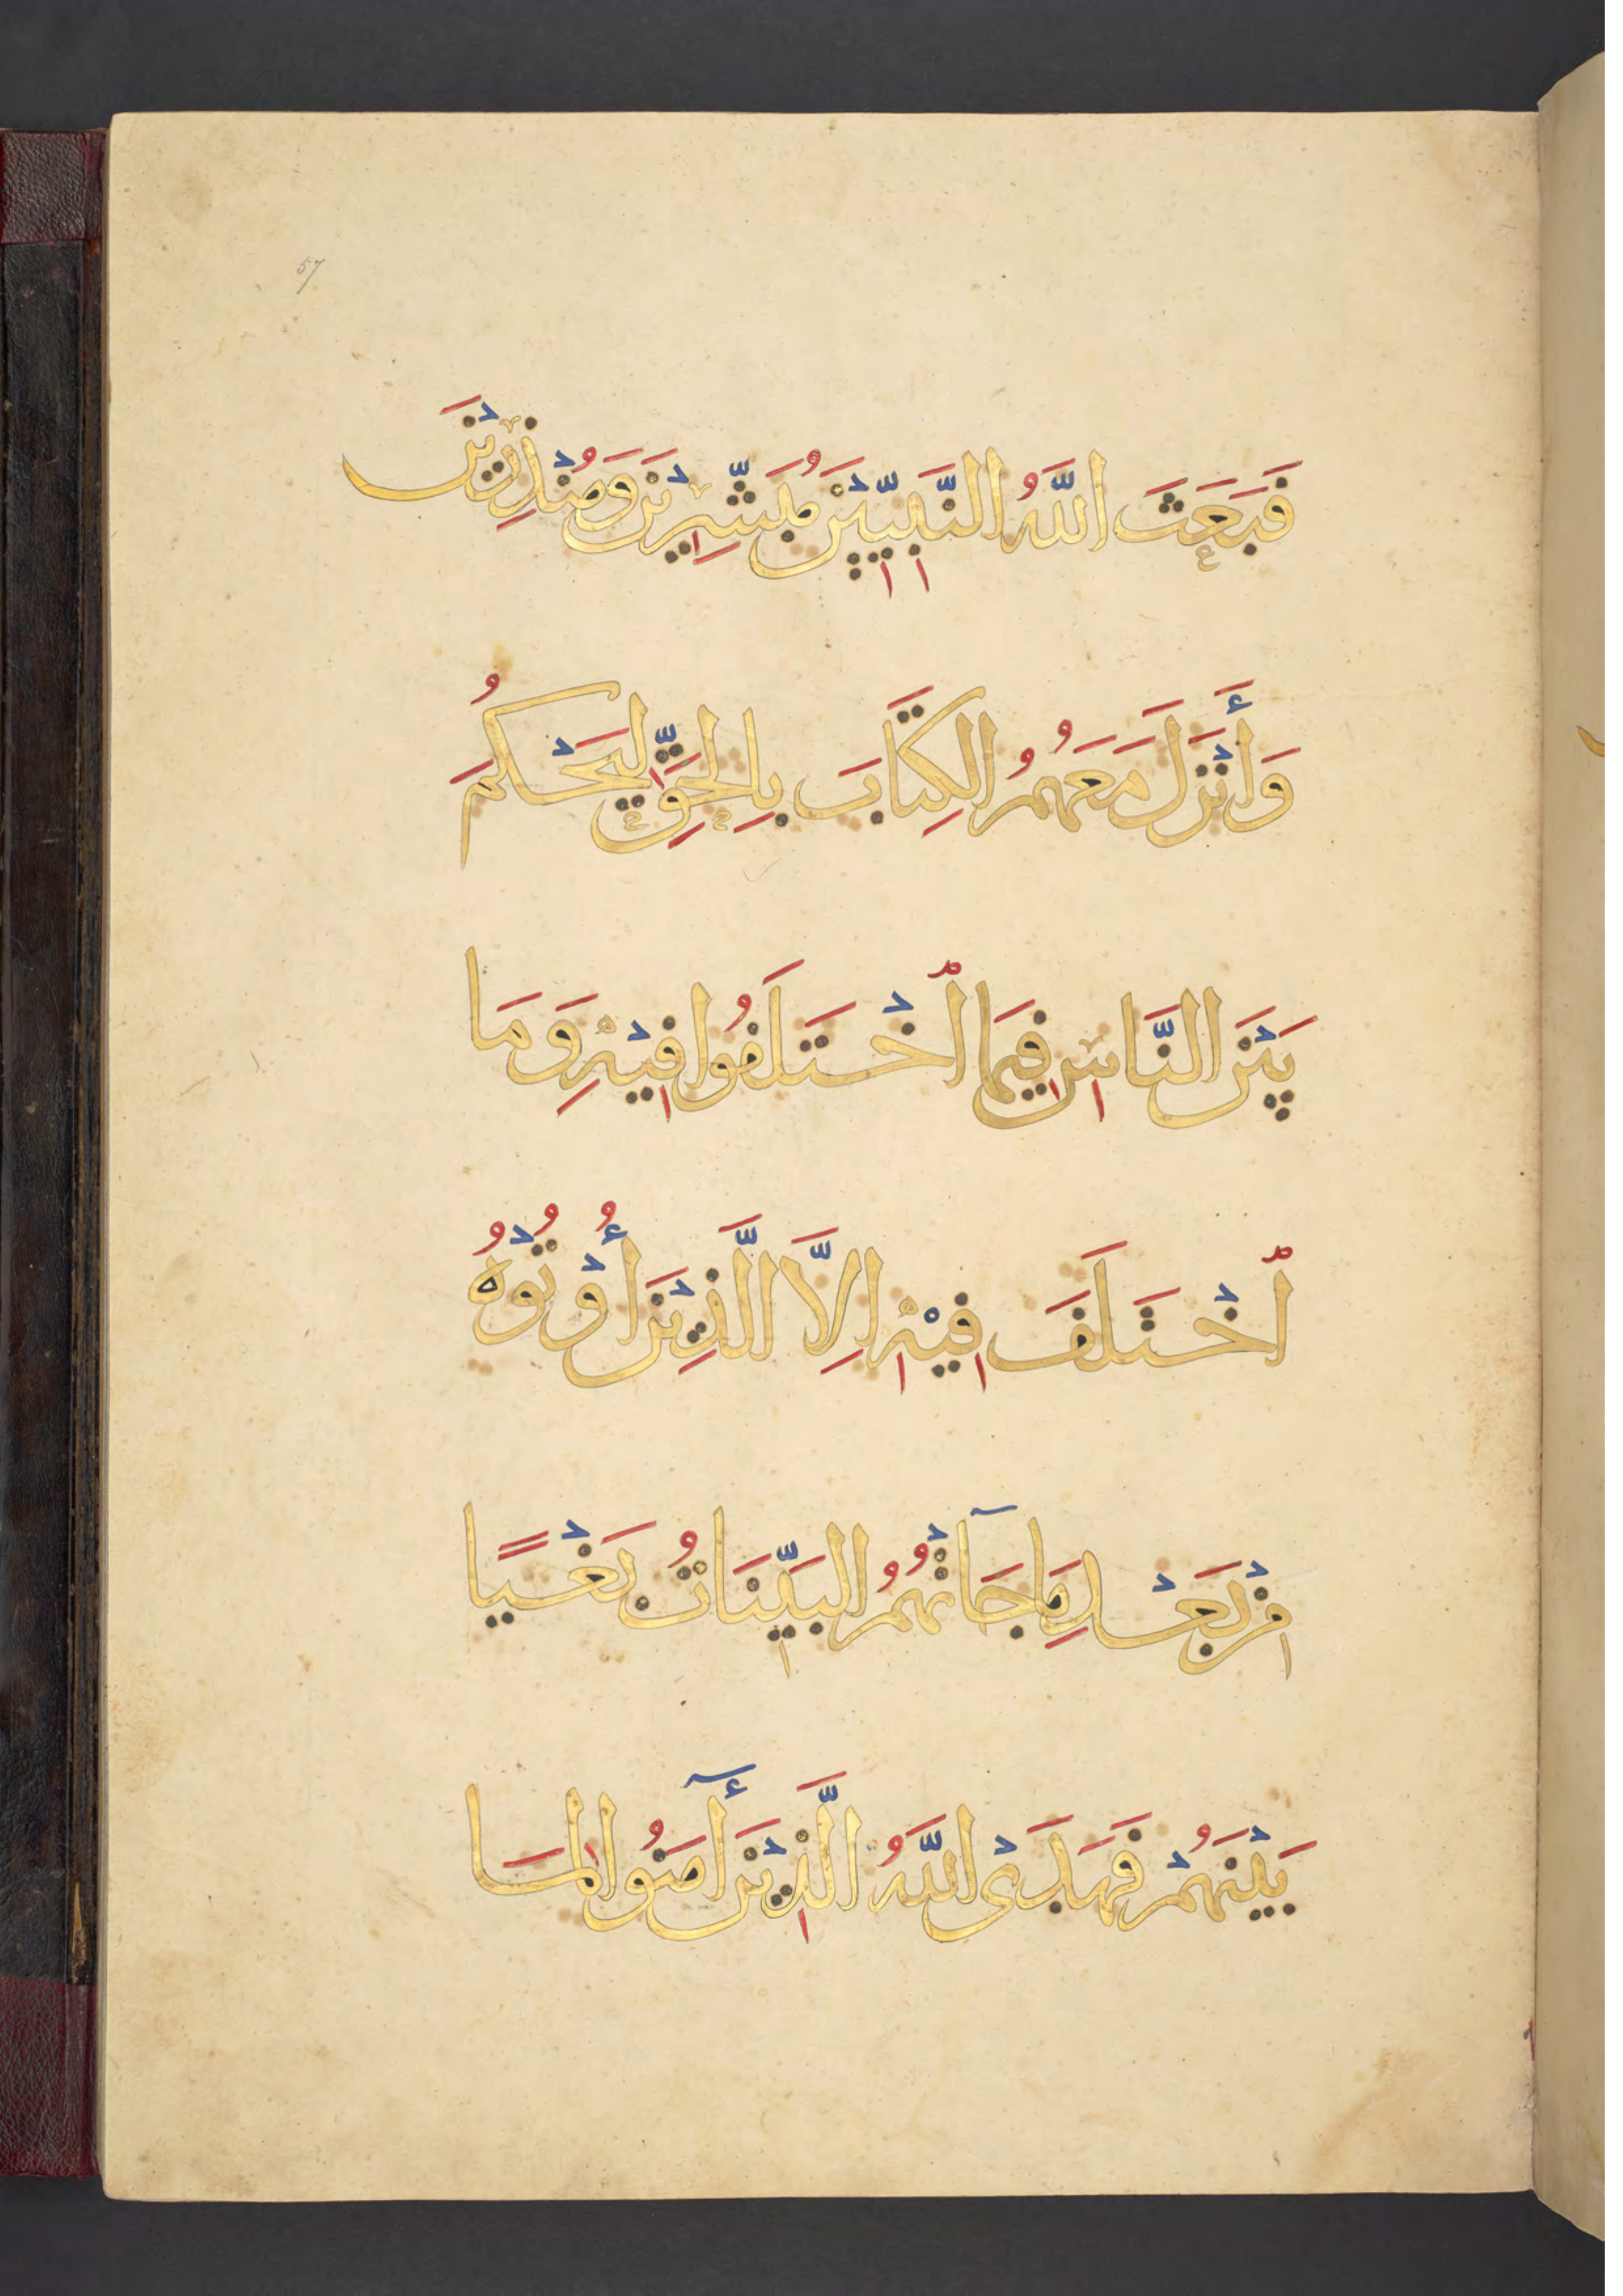 57
فَبَعَثَ اللَّهُ النَّبِيِّيْنَ مُبَشِّرِيْنَ وَمُنْذِرِيْنَ
وَأَنْزَلَ مَعَهُمُ الكِتَابَ بِالحَقِّ لِيَحْكُمَ
بَيْنَ النَّاسِ فِيمَا ٱخْتَلَفُوا فِيْهِ وَمَا
ٱخْتَلَفَ فِيْهِ اِلَّا الَّذِيْنَ أُوْتُوْهُ
مِنْ بَعْدِ مَا جَآتْهُمُ البَيِّنَاتُ بَغْيًا
بَيْنَهُمْ فَهَدَىْ اللَّهُ الَّذِيْنَ أٓمَنُوا لِمَا